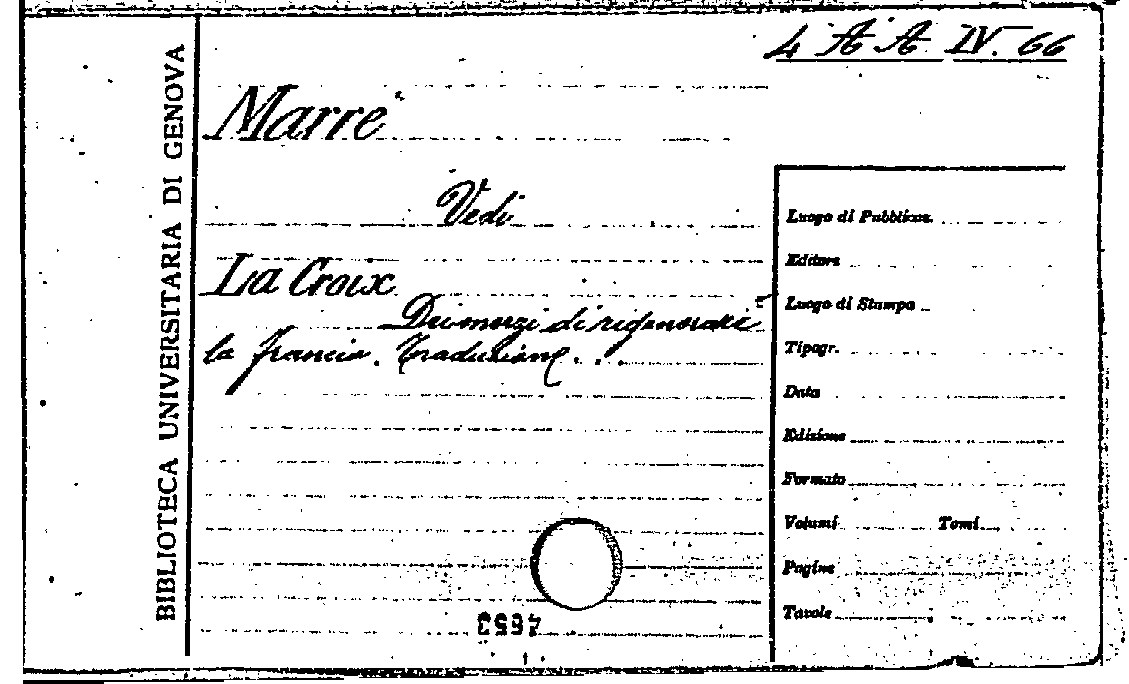 4 AA. IV. 66
BIBLIOTECA UNIVERSITARIA DI GENOVA
Marre'
Vedi
La Croix
Dei mezzi di rigenerare
la Francia. Traduzione...
Luogo di Pubblicaz.
Editore
Luogo di Stampa
Tipogr.
Data
Edizione
Formato
Volumi Tomi
Pagine
Tavole